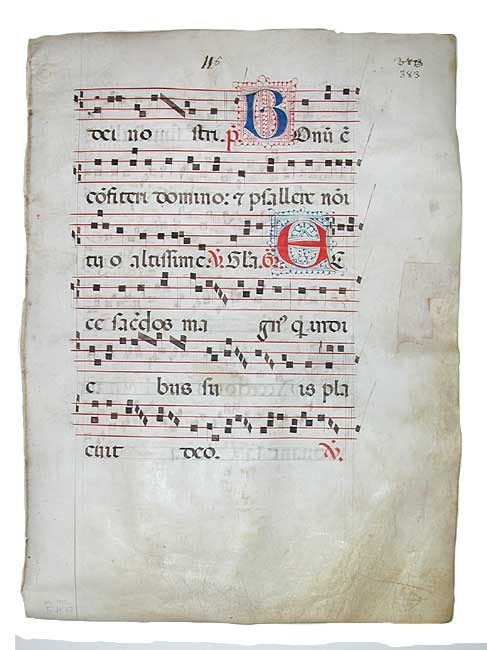 115
383
383
dei no stri. p̄. Bonū ē
cōfiteri domino: ⁊ psallere nōi
tu o altissime. ℣. Gla. Gr̄. Ec
ce sac̄dos ma gnꝰ q in di
e bus su is pla
cuit deo. ℣.